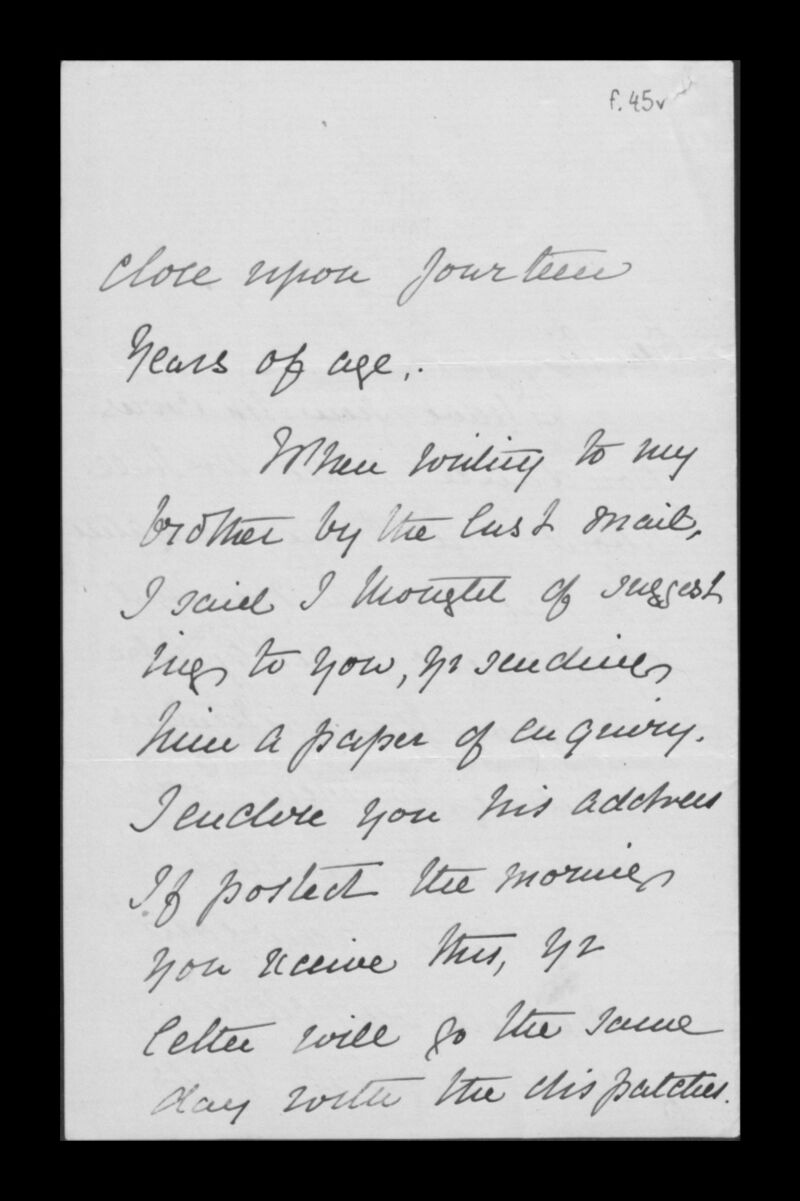 f.45v
close upon fourteen
years of age.
When writing to my
brother by the last mail,
I said I thought of suggest
ing to you, yr sending
him a paper of enquiry.
I enclose you his address
If posted the morning
you receive this, yr
letter will go the same
day with the dispatches.